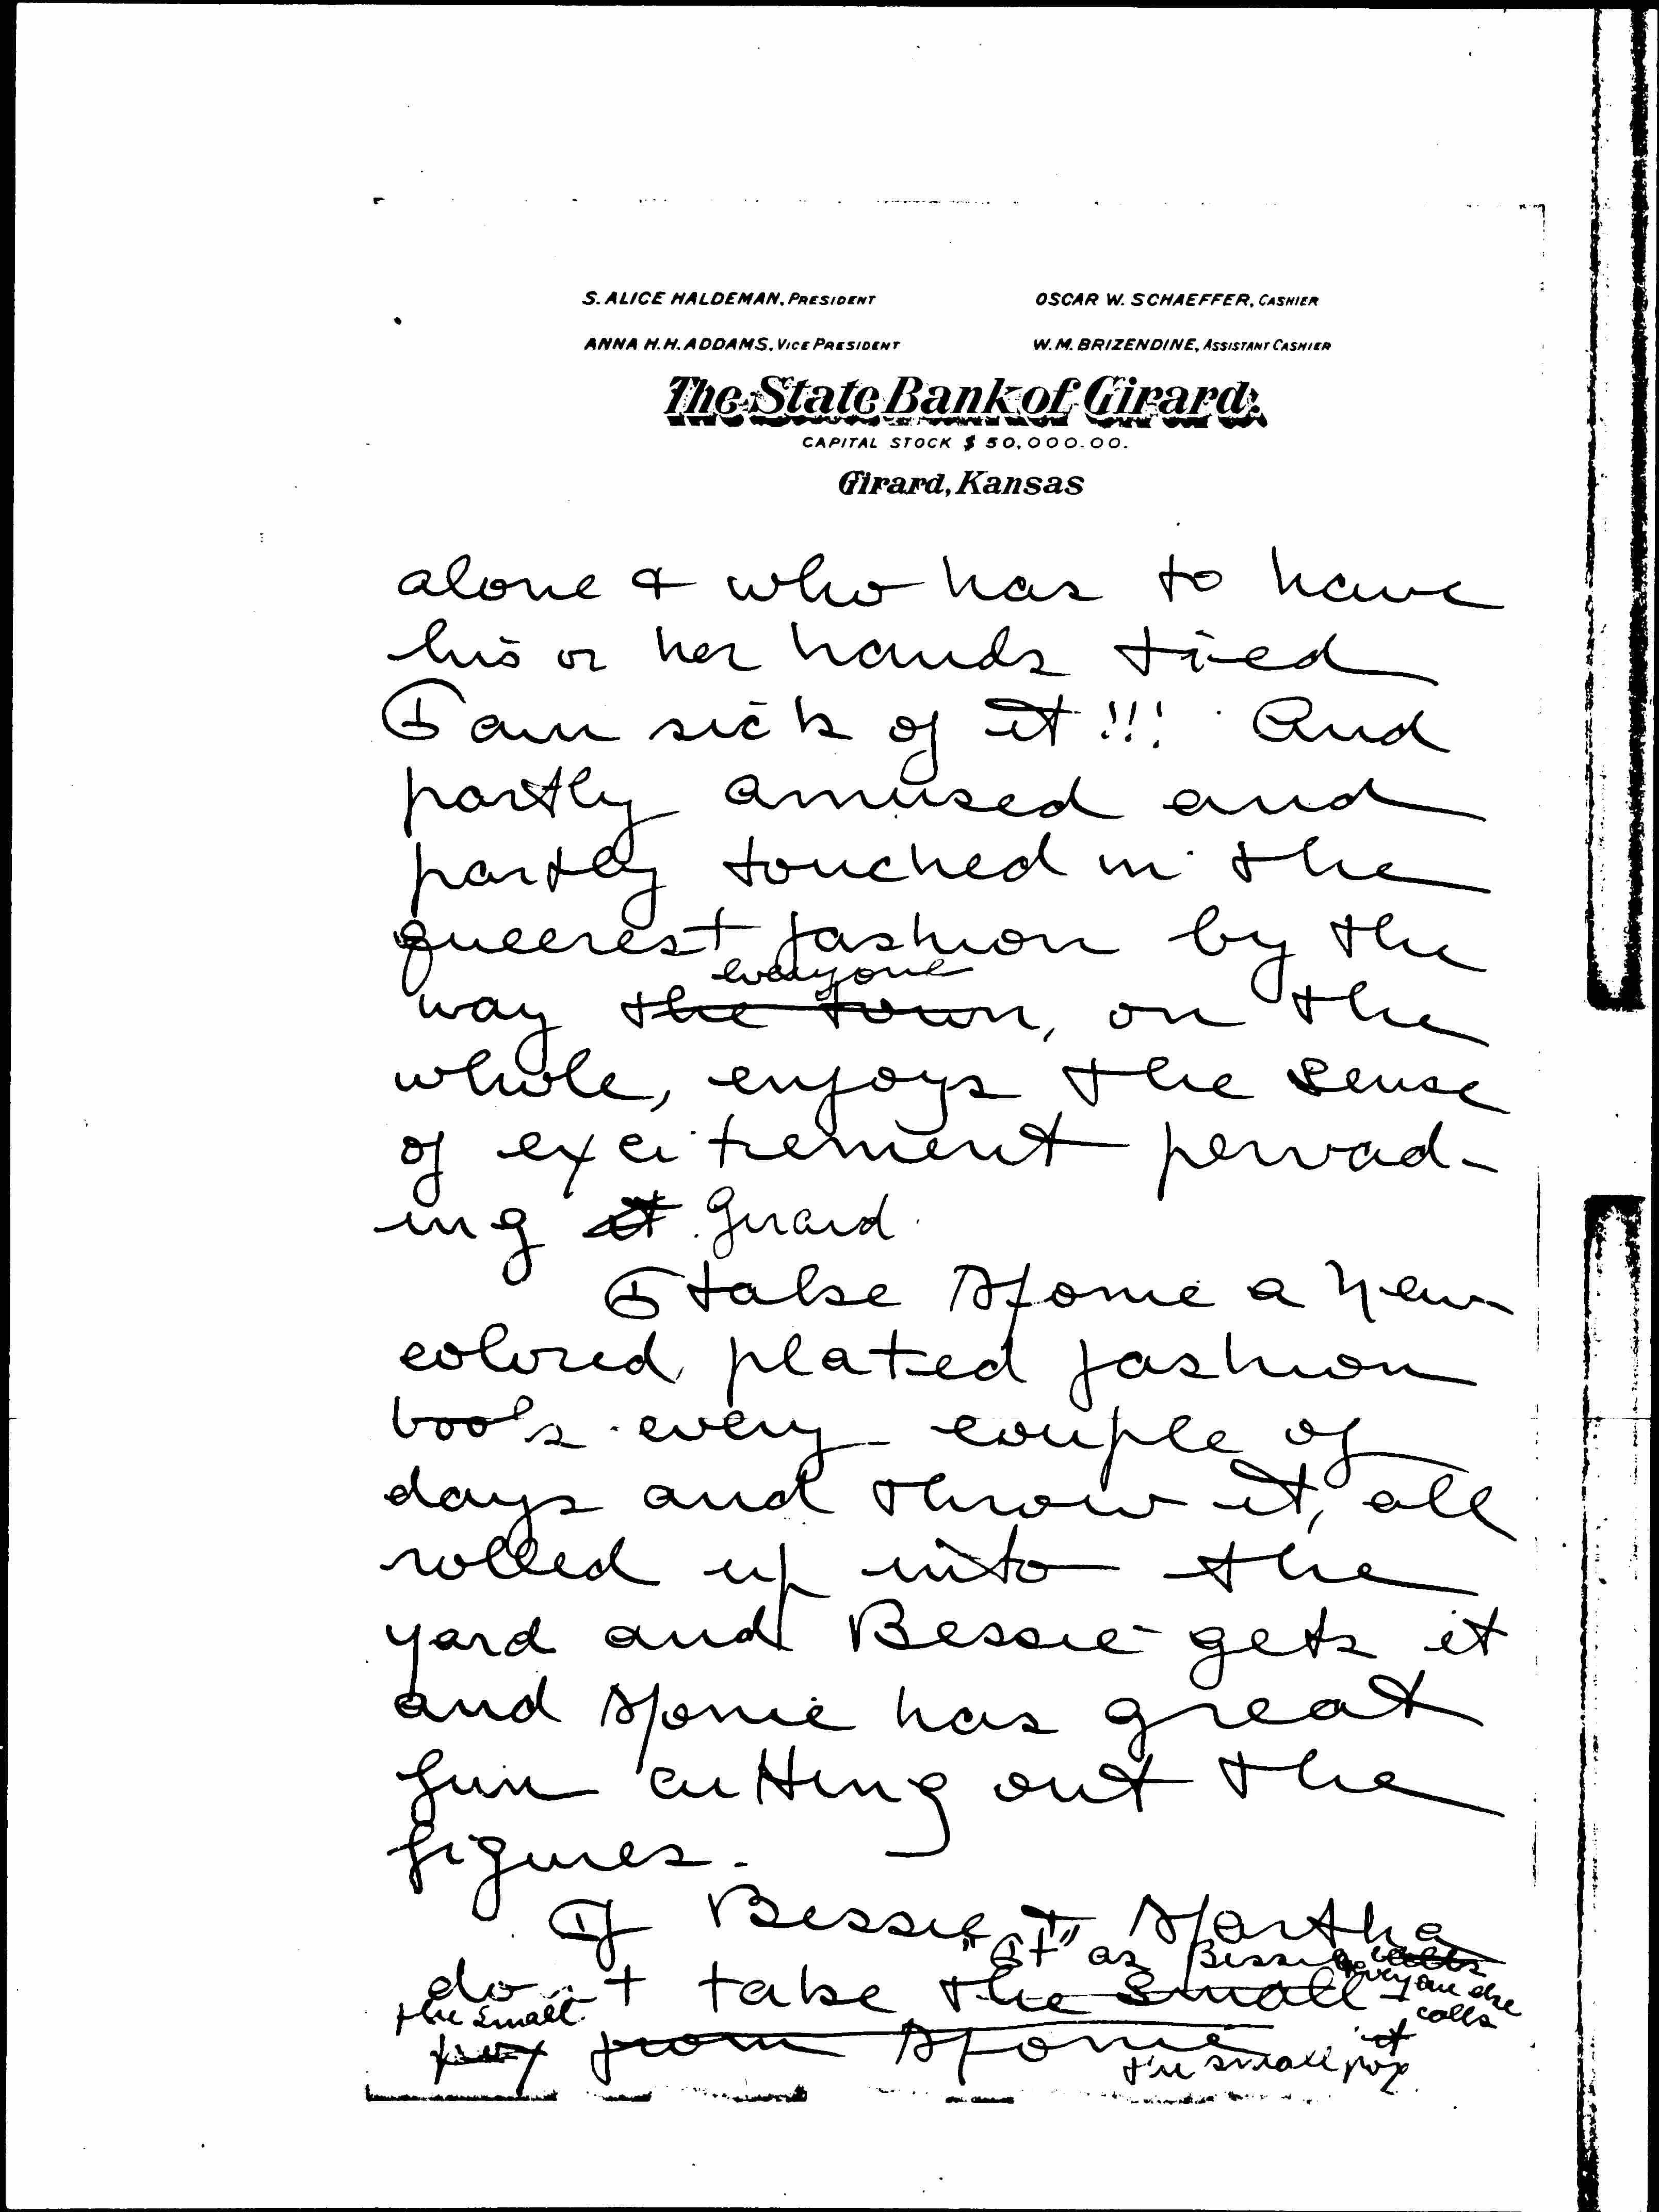 S. ALICE HALDEMAN, PRESIDENT
OSCAR W. SCHAEFFER, CASHIER
ANNA H. H. ADDAMS, VICE PRESIDENT
W. M. BRIZENDINE, ASSISTANT CASHIER
The State Bank of Girard.
CAPITAL STOCK $ 50,000.00.
Girard, Kansas
alone & who has to have
his or her hands tied
I am sick of it!!! And
partly amused and
partly touched in the
queerest fashion by the
everyone
way the town, on the
whole, enjoys the sense
of excitement pervad-
ing it Girard.
I take a new
colored plated fashion
book every couple of
days and throw it, all
rolled up into the
yard and Bessie gets it
and has great
fun cutting out the
figures.
If Bessie & Martha
"It" as Bessie calls
don't take the small
everyone else
calls
it
the small
pox from
the small pox